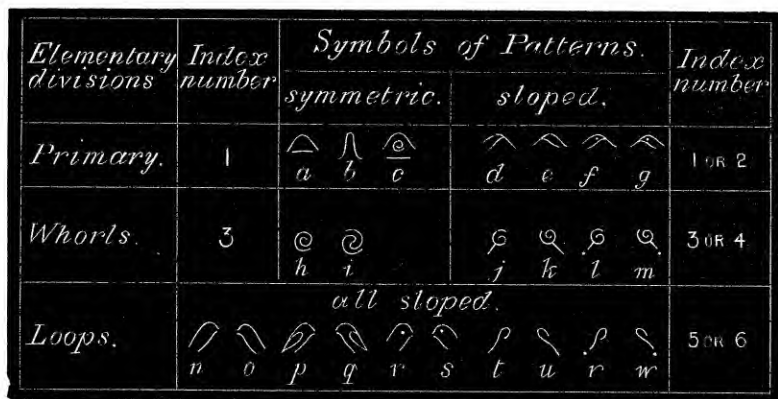 Elementary divisions
Index number
Symbols of Patterns.
symmetric.
sloped.
Index number
Primary.
1
a b c
d e f g
1 OR 2
Whorls.
3
h i
j k l m
3 OR 4
Loops.
all sloped.
n o p q r s t u r w
5 OR 6